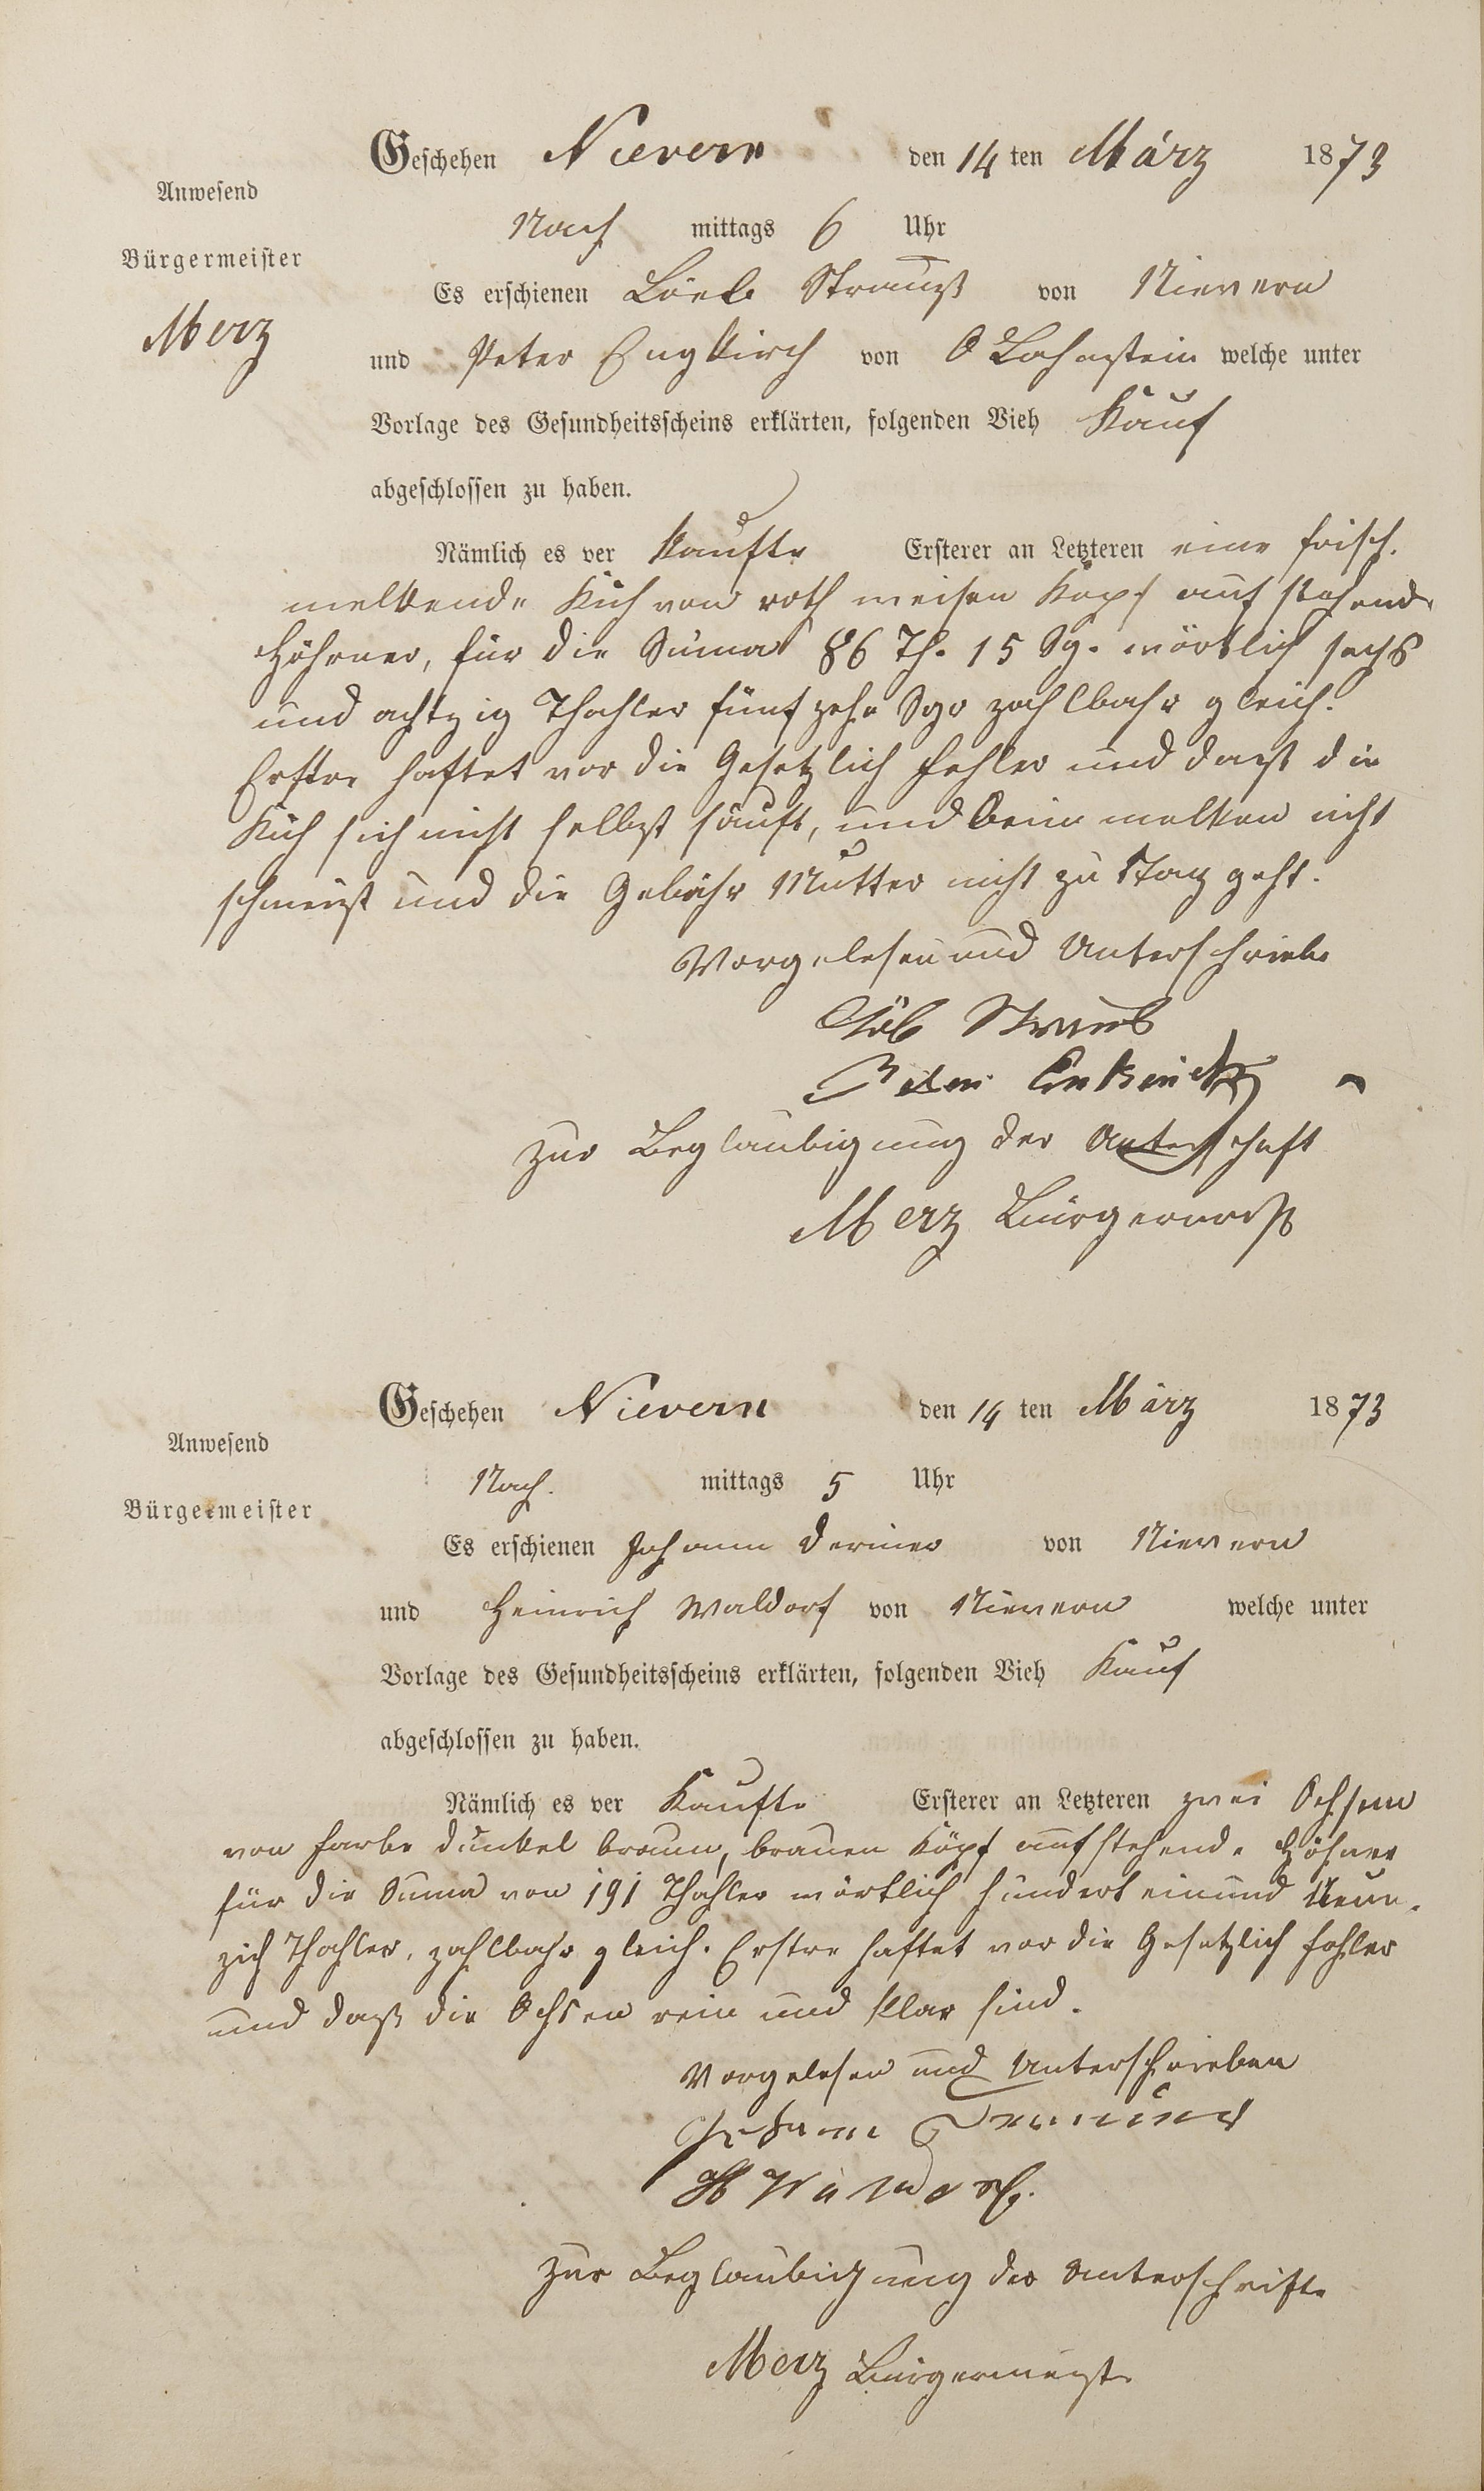 Geschehen Nievern den 14 ten März 1873
Anwesend
Nach mittags 6 Uhr
Bürgermeister
Merz
Es erschienen Löeb Strauß von Nievern
und Peter Engkirch von O Lahnstein welche unter
Vorlage des Gesundheitsscheins erklärten, folgenden Vieh Kauf
abgeschlossen zu haben.
Nämlich es ver kaufte Ersterer an Letzteren eine frisch.
melkende Kuh von roth weisen Kopf auf stehende
Höhrner, für die Suma 86 Th. 15 Sg. wörtlich sechs
und achtzig Thahler fünfzehn Sgr zahlbahr gleich.
Erstre haftet vor die Gesetzlich fehler und daß die
Kuh sich nicht selbst sauft, und beim melken nicht
schmeißt und die Gebähr Mutter nicht zu Tag geht.
Vorgelesen und Unterschriebe
Löb Straus
Peter
zur Beglaubigung der Unterschaft
Merz Bürgermeist
Geschehen Nievern den 14 ten März 1873
Anwesend
Nach. mittags 5 Uhr
Bürgermeister
Es erschienen Johann Derminer von Nievern
und Heinrich Waldorf von Nievern welche unter
Vorlage des Gesundheitsscheins erklärten, folgenden Vieh Kauf
abgeschlossen zu haben.
Nämlich es ver Kaufte Ersterer an Letzteren zwei Ochsen
von farbe dunkel braun, brauen Köpf aufstehende Höhner
für die Suma von 191 Thahler wörtlich hundert einund Neun-
zich Thahler, zahlbahr gleich. Erstre haftet vor die Gesetzlich fehler
und daß die Ochsen rein und klar sind.
Vorgelesen und Unterschrieben
Johann
H Waldorf.
zur Beglaubigung der Unterschrifte
Merz Bürgermeiste